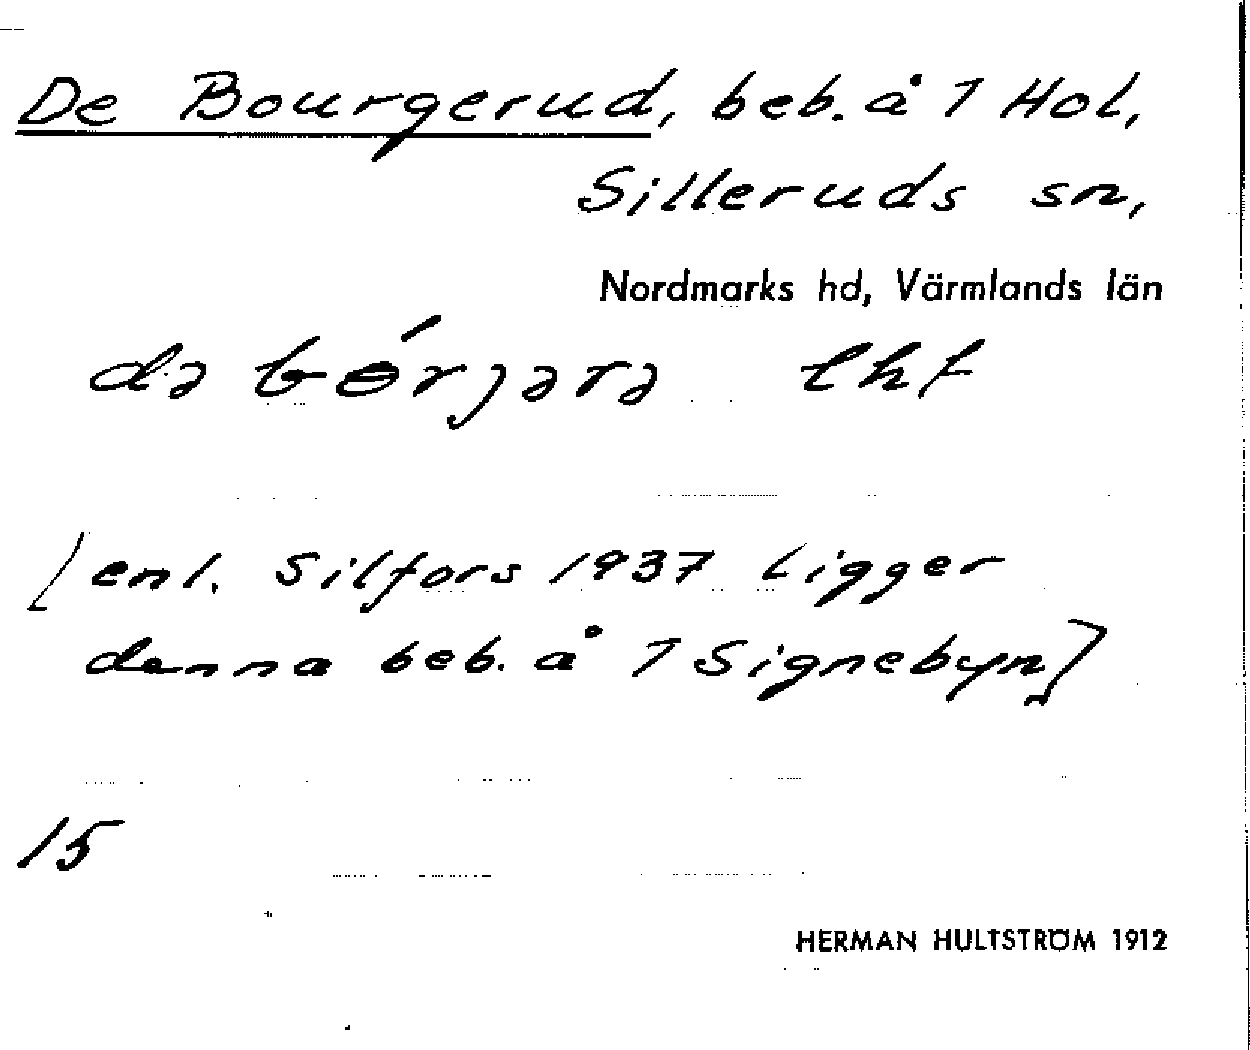 De Bourgerud, beb. å 1 Hol,
Silleruds sn,
Nordmarks hd, Värmlands län
lhf
[enl. Silfors 1937 ligger
denna beb. å 1 Signebyn]
15
HERMAN HULTSTRÖM 1912